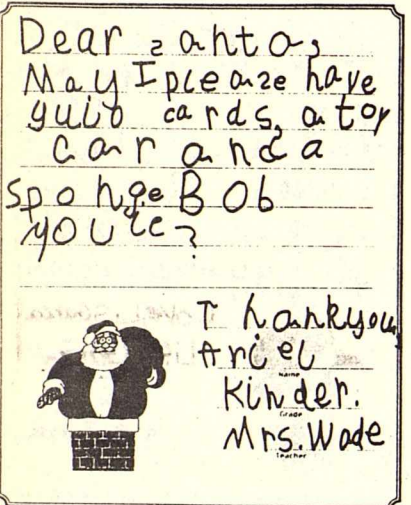 Dear zanta,
May I pleaze have
yuio cards, a toy
car and a
SpongeBob
youle?
Thankyou,
Ariel
Name
Kinder.
Grade
Mrs. Wade
Teacher